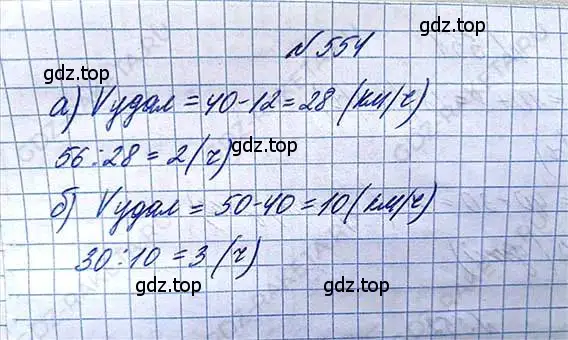 № 554
gdz.top
gdz.top
а) Vудал = 40-12 = 28 (км/ч)
56:28 = 2 (ч)
gdz.top
б) Vудал = 50-40 = 10 (км/ч)
gdz.top
30:10 = 3 (ч)
gdz.top
gdz.top